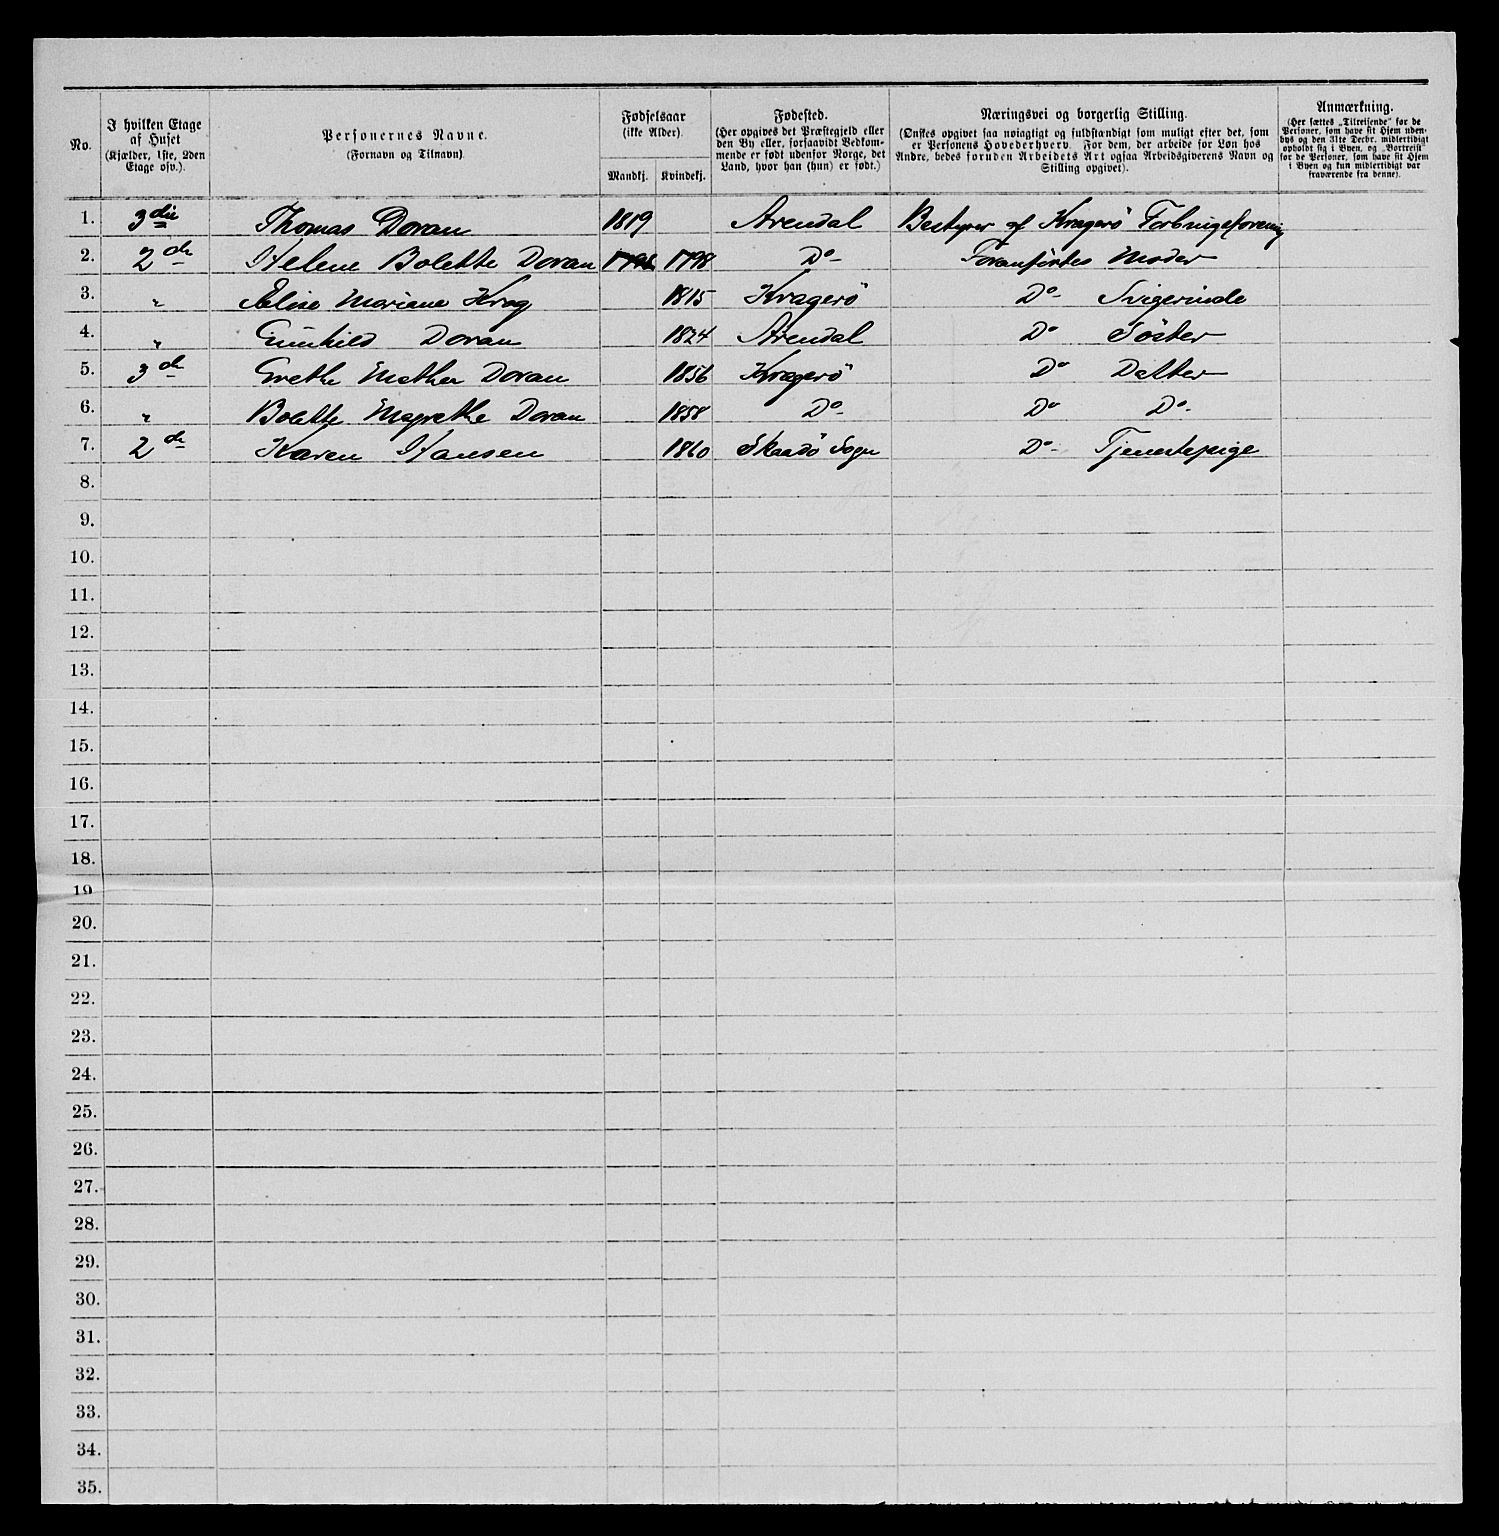 No.
I hvilken Etage
af Huset
(Kjælder, 1ste, 2den
Etage osv.).
Personernes Navne.
(Fornavn og Tilnavn)
Fødselsaar
(ikke Alder).
Mandkj.
Kvindekj.
Fødested.
(Her opgives det Præstegjeld eller
den By eller, forsaavidt Vedkom-
mende er født udenfor Norge, det
Land, hvor han (hun) er født.)
Næringsvei og borgerlig Stilling.
(Ønskes opgivet saa nøiagtigt og fuldstændigt som muligt efter det, som
er Personens Hovederhverv. For dem, der arbeide for Løn hos
Andre, bedes foruden Arbeidets Art ogsaa Arbeidsgiverens Navn og
Stilling opgivet).
Anmærkning.
(Her sættes „Tilreisende" for de
Personer, som have sit Hjem uden-
bys og den 31te Decbr. midlertidigt
opholdt sig i Byen, og „Bortreist"
for de Personer, som have sit Hjem
i Byen og kun midlertidigt var
fraværende fra denne).
1. 3die Thomas Doran 1819 Arendal Bestyrer af Kragerö Forbrugsforening
2. 2de Helene Bolette Doran 1798 1798 Do- Foranførtes Moder
3. " Eline Mariane Krog 1815 Kragerö Do- Svigerinde
4. " Gunhild Doran 1824 Arendal Do Söster
5. 3de Grethe Mathea Doran 1856 Kragerö Do Datter
6. " Bolette Magrethe Doran 1858 Do- Do Do-
7. 2de Karen Hansen 1860 Skaadö Sogn Do- Tjenestepige
8.
9.
10.
11.
12.
13.
14.
15.
16.
17.
18.
19
20.
21.
22.
23.
24.
25.
26.
27.
28.
29.
30.
31.
32.
33.
34.
35.